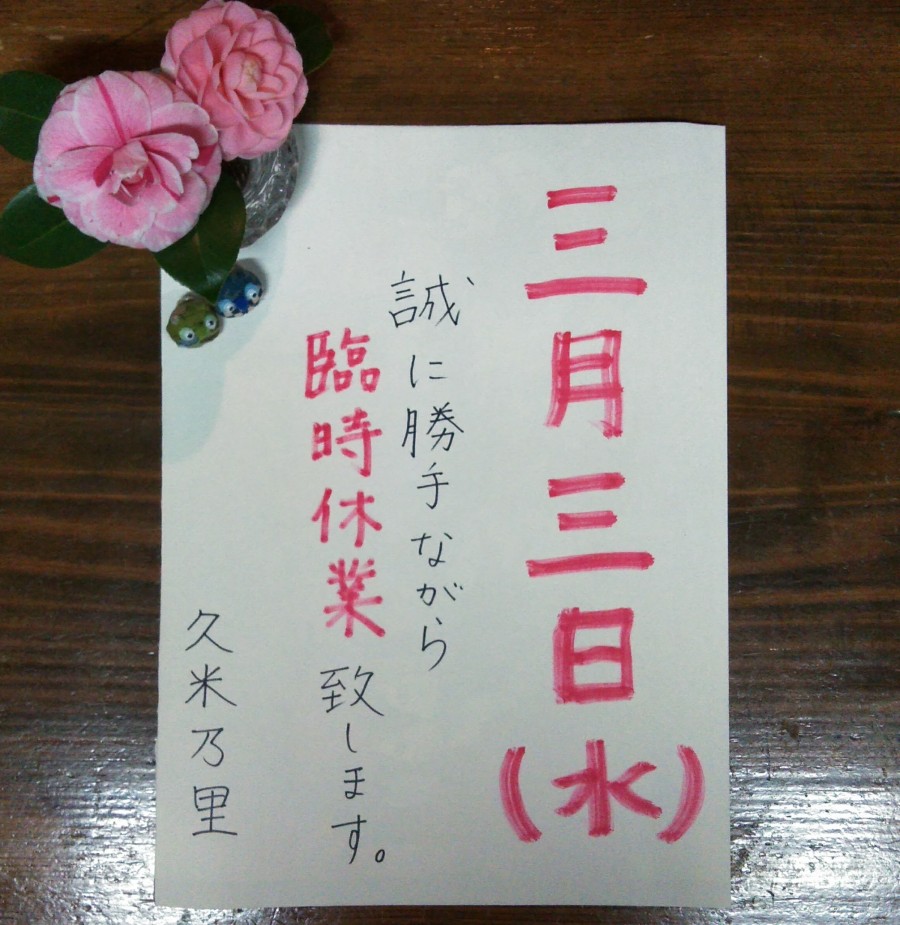 三月三日(水)
誠に勝手ながら
臨時休業致します。
久米乃里